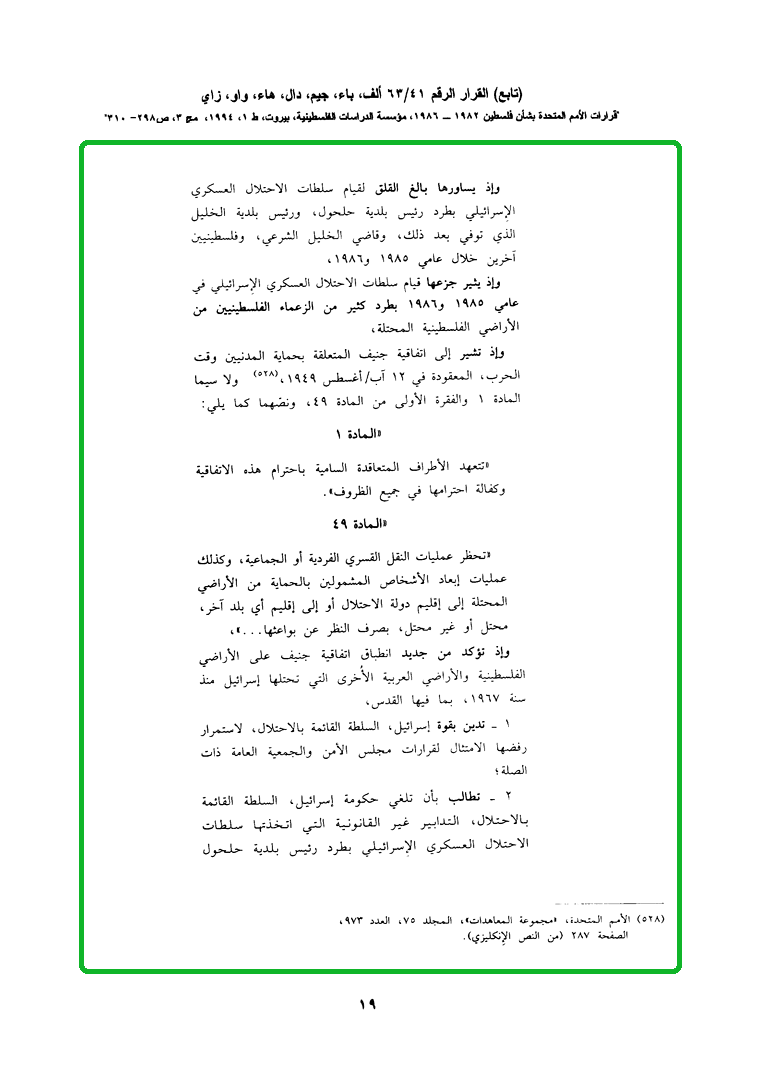 (تابع) القرار الرقم ٦٣/٤١ ألف، باء، جيم، دال، هاء، واو، زاي
"قرارات الأمم المتحدة بشأن فلسطين ١٩٨٢ ــ ١٩٨٦، مؤسسة الدراسات الفلسطينية، بيروت، ط ١، ١٩٩٤، مج ٣، ص٢٩٨- ٣١٠"
وإذ يساورها بالغ القلق لقيام سلطات الاحتلال العسكري
الإسرائيلي بطرد رئيس بلدية حلحول، ورئيس بلدية الخليل
الذي توفي بعد ذلك، وقاضي الخليل الشرعي، وفلسطينيين
آخرين خلال عامي ١٩٨٥ و١٩٨٦،
وإذ يثير جزعها قيام سلطات الاحتلال العسكري الإسرائيلي في
عامي ١٩٨٥ و١٩٨٦ بطرد كثير من الزعماء الفلسطينيين من
الأراضي الفلسطينية المحتلة،
وإذ تشير إلى اتفاقية جنيف المتعلقة بحماية المدنيين وقت
الحرب، المعقودة في ١٢ آب/أغسطس ١٩٤٩،(٥٢٨) ولا سيما
المادة ١ والفقرة الأولى من المادة ٤٩، ونصّهما كما يلي:
«المادة ١
«تتعهد الأطراف المتعاقدة السامية باحترام هذه الاتفاقية
وكفالة احترامها في جميع الظروف».
«المادة ٤٩
«تحظر عمليات النقل القسري الفردية أو الجماعية، وكذلك
عمليات إبعاد الأشخاص المشمولين بالحماية من الأراضي
المحتلة إلى إقليم دولة الاحتلال أو إلى إقليم أي بلد آخر،
محتل أو غير محتل، بصرف النظر عن بواعثها...»،
وإذ تؤكد من جديد انطباق اتفاقية جنيف على الأراضي
الفلسطينية والأراضي العربية الأُخرى التي تحتلها إسرائيل منذ
سنة ١٩٦٧، بما فيها القدس،
١ ـ تدين بقوة إسرائيل، السلطة القائمة بالاحتلال، لاستمرار
رفضها الامتثال لقرارات مجلس الأمن والجمعية العامة ذات
الصلة؛
٢ ـ تطالب بأن تلغي حكومة إسرائيل، السلطة القائمة
بالاحتلال، التدابير غير القانونية التي اتخذتها سلطات
الاحتلال العسكري الإسرائيلي بطرد رئيس بلدية حلحول
(٥٢٨) الأمم المتحدة، «مجموعة المعاهدات»، المجلد ٧٥، العدد ٩٧٣،
الصفحة ٢٨٧ (من النص الإنكليزي).
١٩